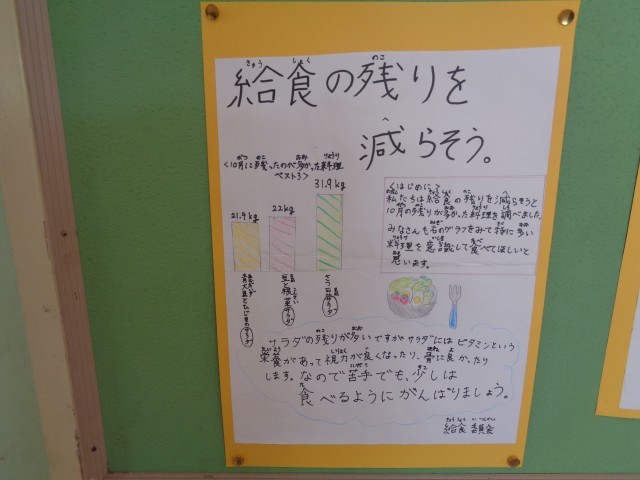 給食の残りを
減らそう。
<10月に残ったのが多かった料理
ベスト3>
31.9kg
22kg
21.9kg
サラダ
サラダ
サラダ
<はじめに>
私たちは給食の残りを減らそうと
10月の残りが多かった料理を調べました。
みなさんも右のグラフをみて特に多い
料理を意識して食べてほしいと
思います。
サラダの残りが多いですがサラダにはビタミンという
栄養があって視力が良くなったり、骨に良かったり
します。なので苦手でも、少しは
食べるようにがんばりましょう。
給食委員会